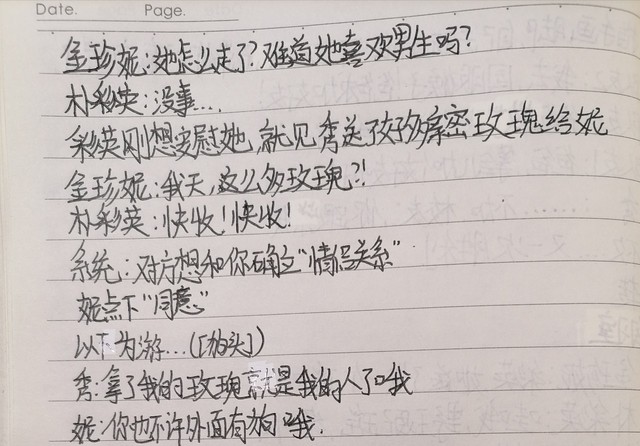 Date. Page.
金珍妮:她怎么走了?难道她喜欢男生吗?
朴彩英:没事...
彩英刚想安慰她,就见秀送了孩孩糜密玫瑰给妮
金珍妮:我天,这么多玫瑰?!
朴彩英:快收!快收!
系统:对方想和你确立“情侣关系”
妮点下“同意”
以下为游...([狗头])
秀:拿了我的玫瑰就是我的人了哦
妮:你也不许外面有狗哦.